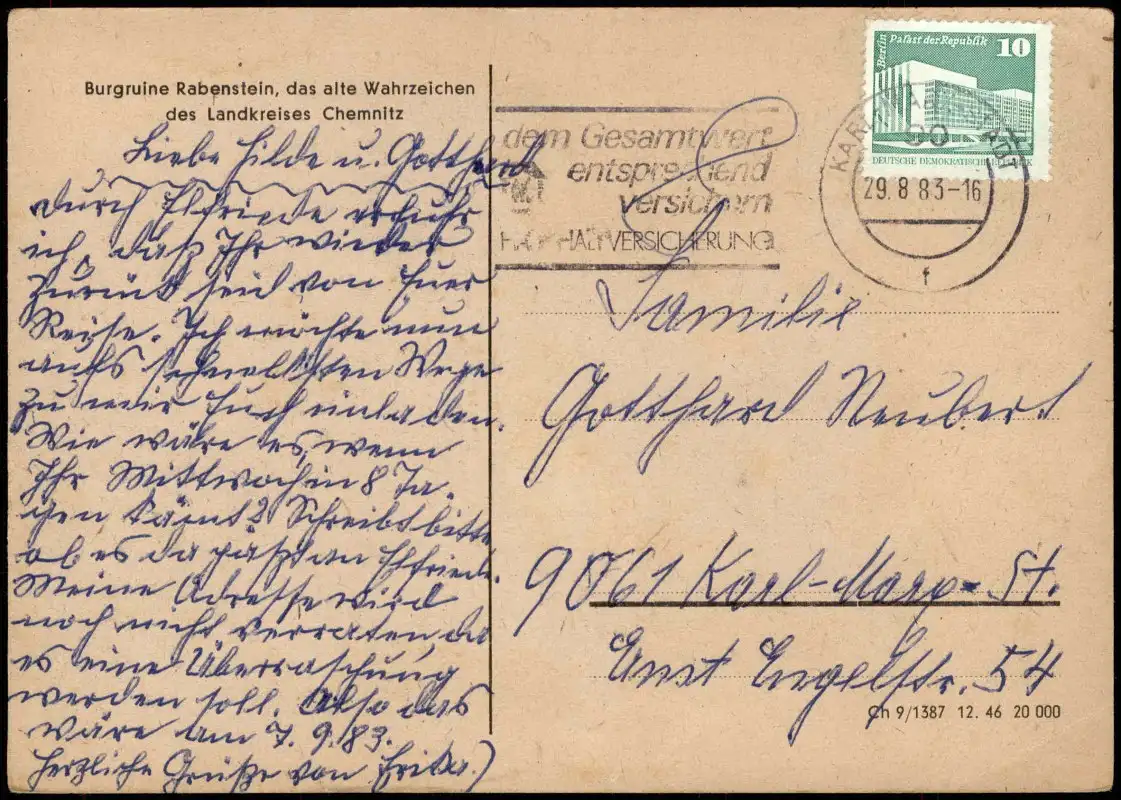 Burgruine Rabenstein, das alte Wahrzeichen
des Landkreises Chemnitz
Liebe Hilde u. Gotthard
durch Elfriede erfuhr
ich, daß Ihr wieder
zurück seid von Eurer
Reise. Ich möchte nun
aufs schnellsten Wege
zu mir Euch einladen.
Wie wäre es, wenn
Ihr Mittwoch in 8 Ta-
gen kämt? Schreibt bitte
ob es da paßt an Elfriede.
Meine Adresse wird
noch nicht verraten da
es eine Überraschung
werden soll. Also das
wäre am 7.9.83.
Herzliche Grüße von Erika.)
dem Gesamtwert
entsprechend
versichern
HAUSHALTVERSICHERUNG
Berlin Palast der Republik 10
DEUTSCHE DEMOKRATISCHE REPUBLIK
KARL-MARX-STADT
90
29.8 83-16
f
Familie
Gotthard Neubert
9061 Karl-Marx-St.
Ernst Engelstr. 54
Ch 9/1387 12. 46 20 000